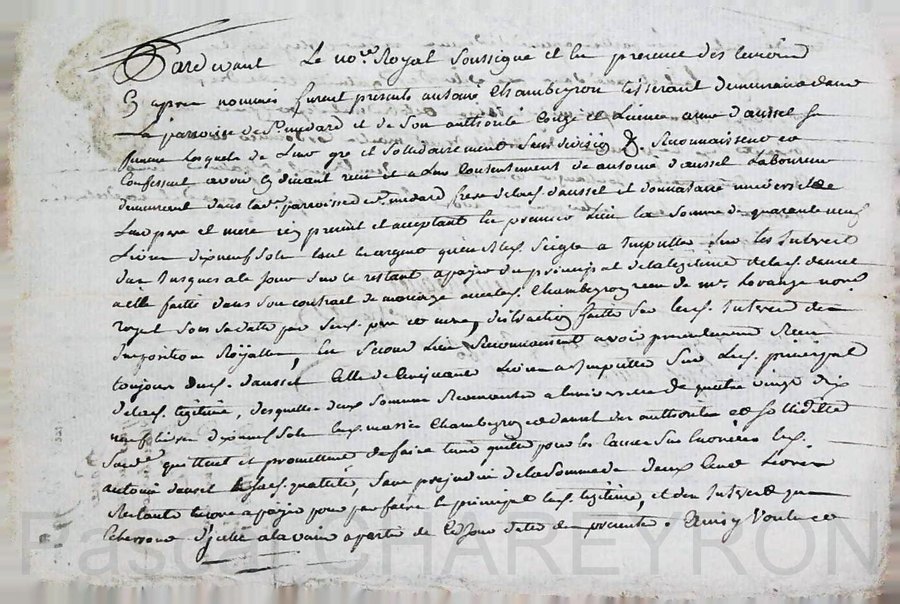 Pardevant Le no.re Royal Soussigné et En presence des temoins
Cy apres nommés furent presents antoine Chambeyron tisserant demeurant dans
La parroisse de St. medard et de Son authorité Conge et Licence anne d'aussel Sa
femme Lesquels de Leur gré et Sollidairement Sans division &. Reconnaissent et
Confessent avoir Cy divant reçu et a Leur Contentement de antoine d'aussel Laboureur
demeurant dans lad. parroisse de St. medard frere de lad. d'aussel et donnataire universel de
Leurs pere et mere icy present et acceptant En premier Lieu La Somme de quarante neuf
Livres dix neuf Sols tant En argent qu'en Bled Seigle a Imputter Sur Les Interets
dus Jusques a ce Jour Sur le restant a payer du principal de la legitime de lad. d'aussel
a elle faitte dans Son contrat de mariage avec led. Chambeyron reçu de me. Lavange no.re
royal Sous Sa datte par Sesd. pere et mere, distraction faitte Sur lesd. Interets des
Impositions Royalles, En Second Lieu Reconnaissent avoir presentement Reçu
toujours dud. d'aussel Celle de Cinquante Livres a Imputter Sur Led. principal
de lad. legitime, desquelles deux Sommes Revenantes a l'universelle de quatre vingt dix
neuf livres dix neuf Sols Lesd. mariés Chambeyron et d'aussel des authorités et Sollidité
Susd. quittent et promettent de faire tenir quitte pour les Causes Sus Enoncées led.
antoine d'aussel, Sans prejudice de la Somme de deux Cent Livres
Restante Encore a payer pour parfaire Le principal de lad. legitime, et des Interets qui
a la vane a partir de Ce Jour datte des presentes. Ainsy Voulu et
Pascal CHAREYRON